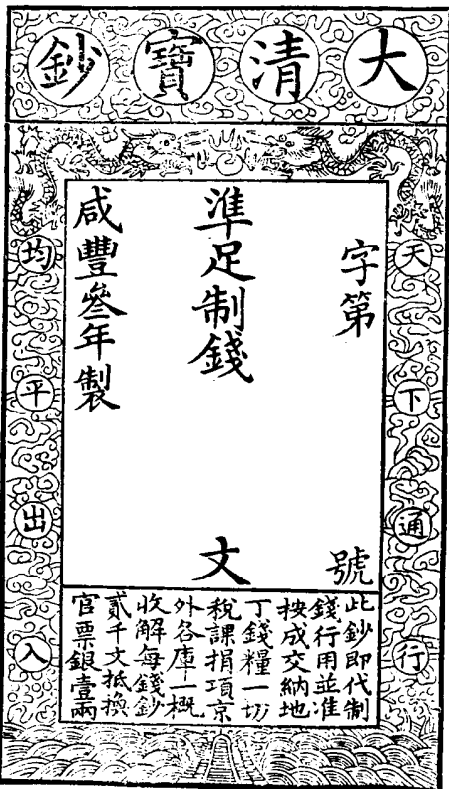 大清寶鈔
天下通行
均平出入
字第 號
準足制錢 文
咸豐叄年製
此鈔即代制
錢行用並准
按成交納地
丁錢糧一切
稅課捐項京
外各庫一概
收解每錢鈔
貳千文抵換
官票銀壹兩